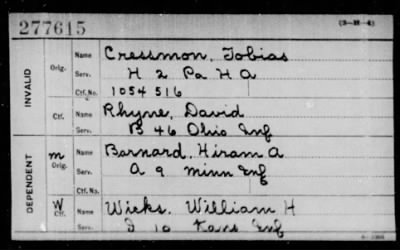 277615
(3-M-4)
INVALID
Orig.
Name Cressmon, Tobias
Serv. H 2 Pa H A
Ctf. No. 1054516
Ctf.
Name Rhyne, David
Serv. B 46 Ohio Inf
DEPENDENT
m
Orig.
Name Barnard, Hiram A
Serv. A 9 Minn Inf
Ctf. No.
W
Ctf.
Name Wicks, William H
Serv. D 10 Kans Inf